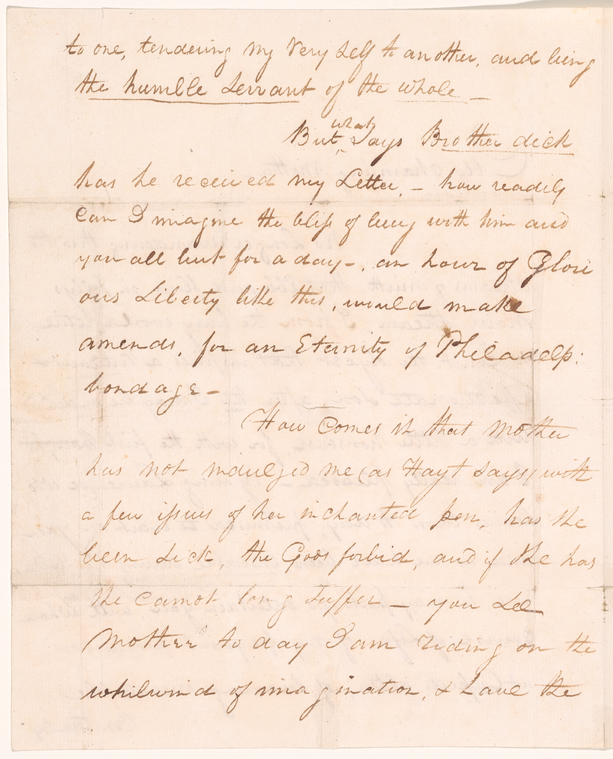 to one, tendering my Very self to another, and being
the humble Servant of the whole _
But what Says Brother dick
has he received my Letter, - how readily
Can I imagine the bliss of being with him and
you all but for a day -, an hour of Glori
ous Liberty like this, would make
amends, for an Eternity of Philadelp:
bondage -
How Comes it that Mother
has not indulged me (as Hayt says) with
a few issues of her inchanted pen, has she
been Sick, the Gods forbid, and if She has
She cannot long Suffer - you See
Mother to day I am riding on the
whilwind of imagination, & have the